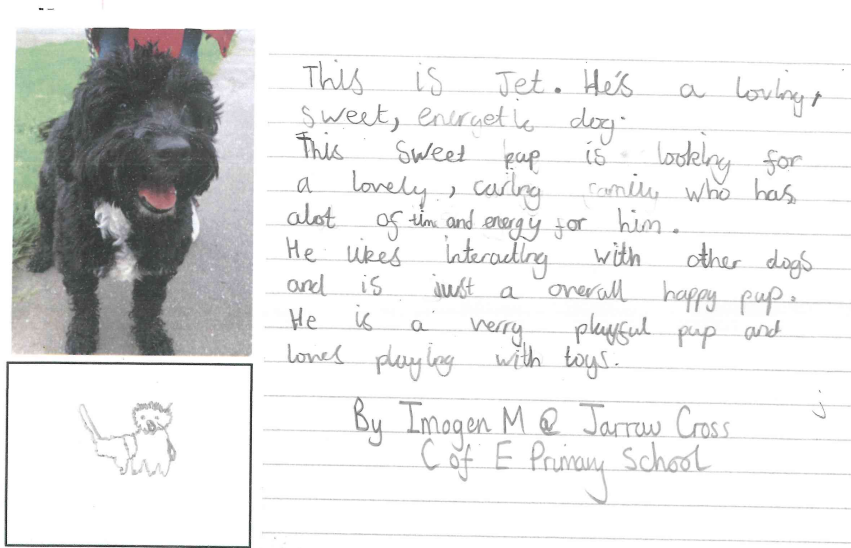 This is Jet. He's a loving,
sweet, energetic dog.
This sweet pup is looking for
a lovely, caring family who has
alot of time and energy for him.
He likes interacting with other dogs
and is just a overall happy pup.
He is a verry playful pup and
loves playing with toys.
By Imogen M @ Jarrow Cross
C of E Primary School